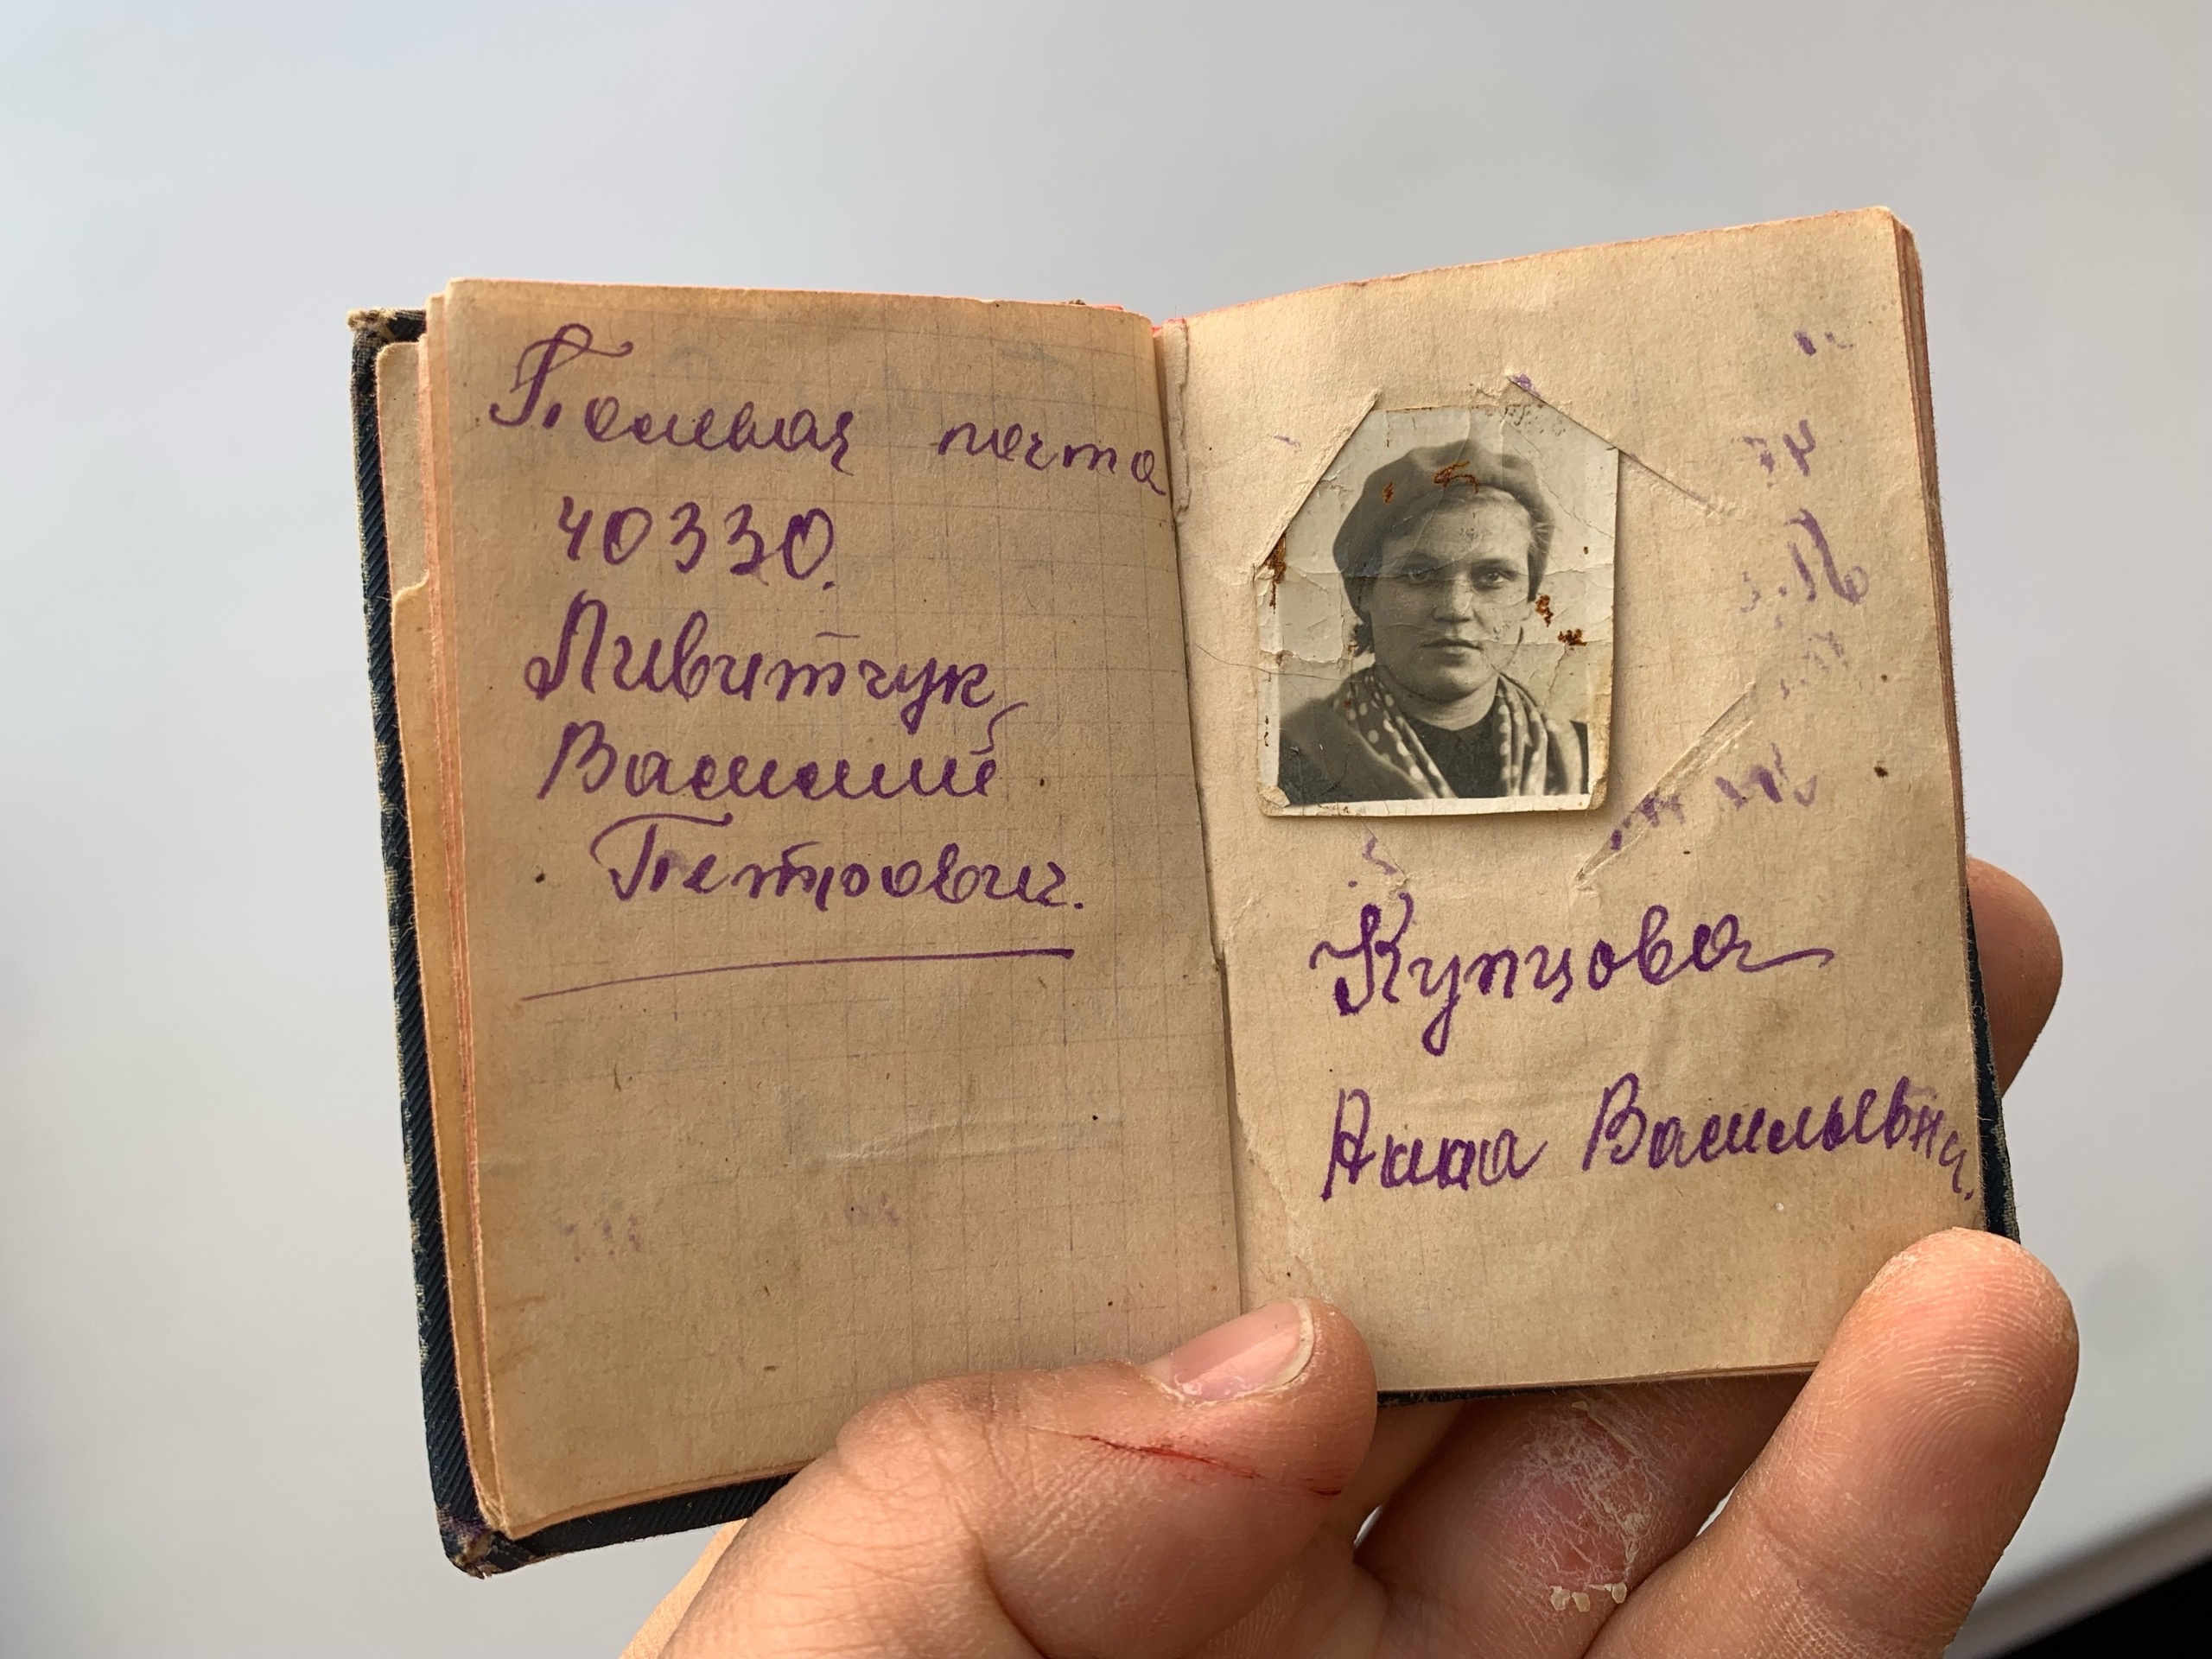 Полевая почта
40330.
Ливитчук
Василий
Петрович.
Купцова
Анна Васильевна.